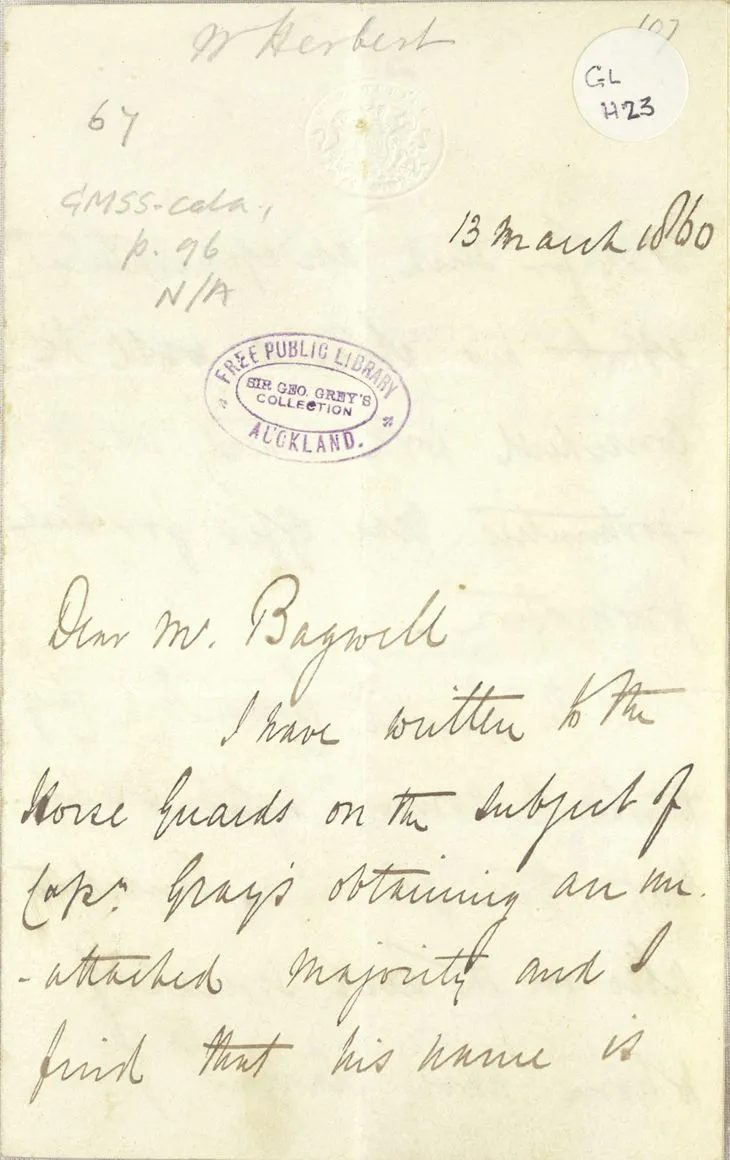 W Herbert
107
GL
H23
67
GMSS-cala.,
p. 96
N/A
13 March 1860
FREE PUBLIC LIBRARY
SIR GEO. GREY'S
COLLECTION
AUCKLAND.
Dear Mr. Bagwell
I have written to the
Horse Guards on the subject of
Capn. Gray's obtaining an un.
-attached majority and I
find that his name is